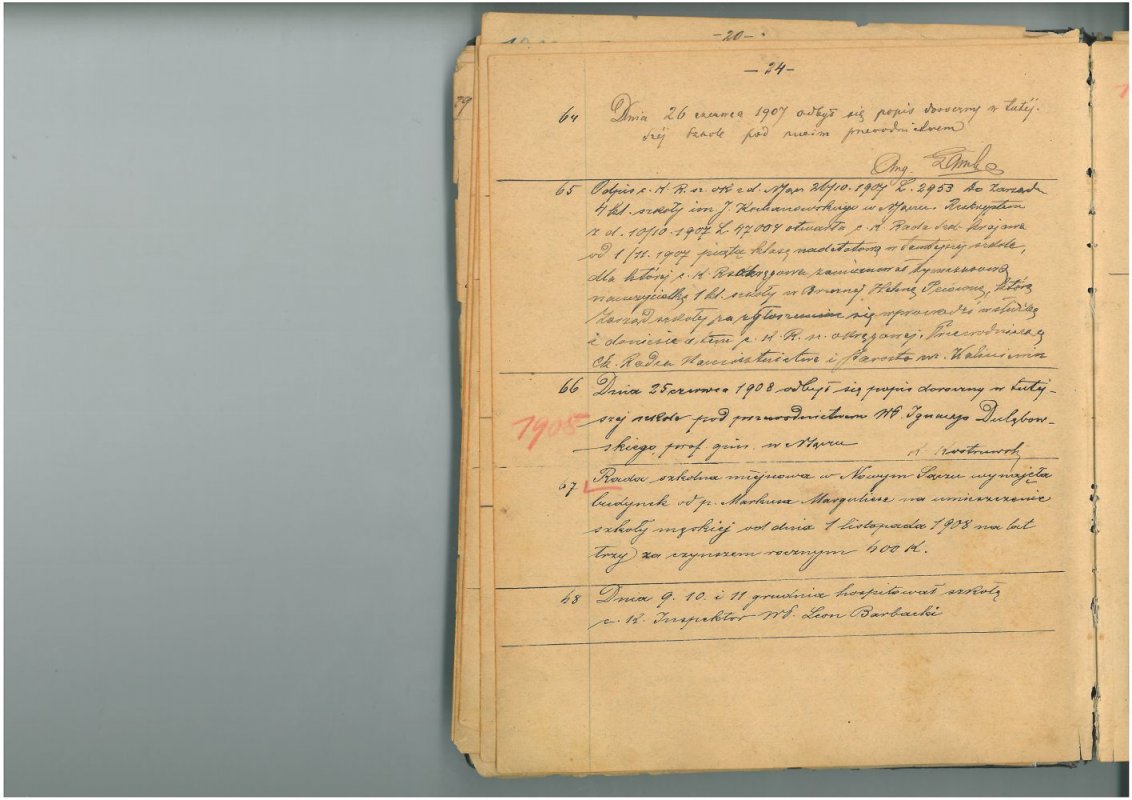 -20-
-24-
64 Dnia 26 czerwca 1907 odbył się popis doroczny w tutej-
szej szkole pod moim przewodnictwem
Ang.
65 Odpis c. K R. sz. okr z d. 26/10. 1907 L. 2953 do Zarządu
4 kl. szkoły im. J. Kochanowskiego w N. Sączu. Reskryptem
z d. 10/10. 1907 L. 47004 otwarła c. K. Rada szk. krajowa
od 1/11. 1907 piątą klasę nadetatową w tamtejszej szkole,
dla której c. K. R. sz. okręgowa zamianowała tymczasową
nauczycielką 1 kl. szkoły w Helenę którą
Zarząd szkoły po zgłoszeniu się wprowadzi w służbę
i doniesie o tem c. K. R. sz. okręgowej. Przewodniczący
Ck. Radca Namiestnictwa i Starosta
66 Dnia 25 czerwca 1908 odbył się popis doroczny w tutej-
1908 szej szkole pod przewodnictwem WP. Ignacego Dulębow-
skiego, prof. gim. w N. Sączu
67 Rada szkolna miejscowa w Nowym Sączu wynajęła
budynek od p. Markusa Marguliesa na umieszczenie
szkoły męskiej od dnia 1 listopada 1908 na lat
trzy za czynszem rocznym 600 K.
68 Dnia 9. 10. i 11 grudnia hospitował szkołę
c. K. Inspektor WP. Leon Barbacki